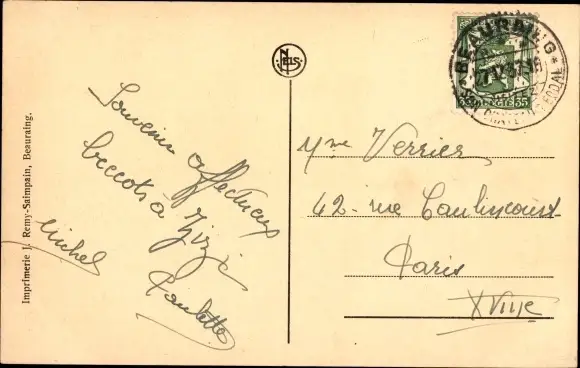 Souvenir affectueux
beccots à Zizie
Michel
Paulette
Imprimerie J. Remy-Saimpain, Beauraing.
NELS
BEAURAING
BELGIE 35
Mme Verrier
42 - rue Caulincourt
Paris
XVIIIe